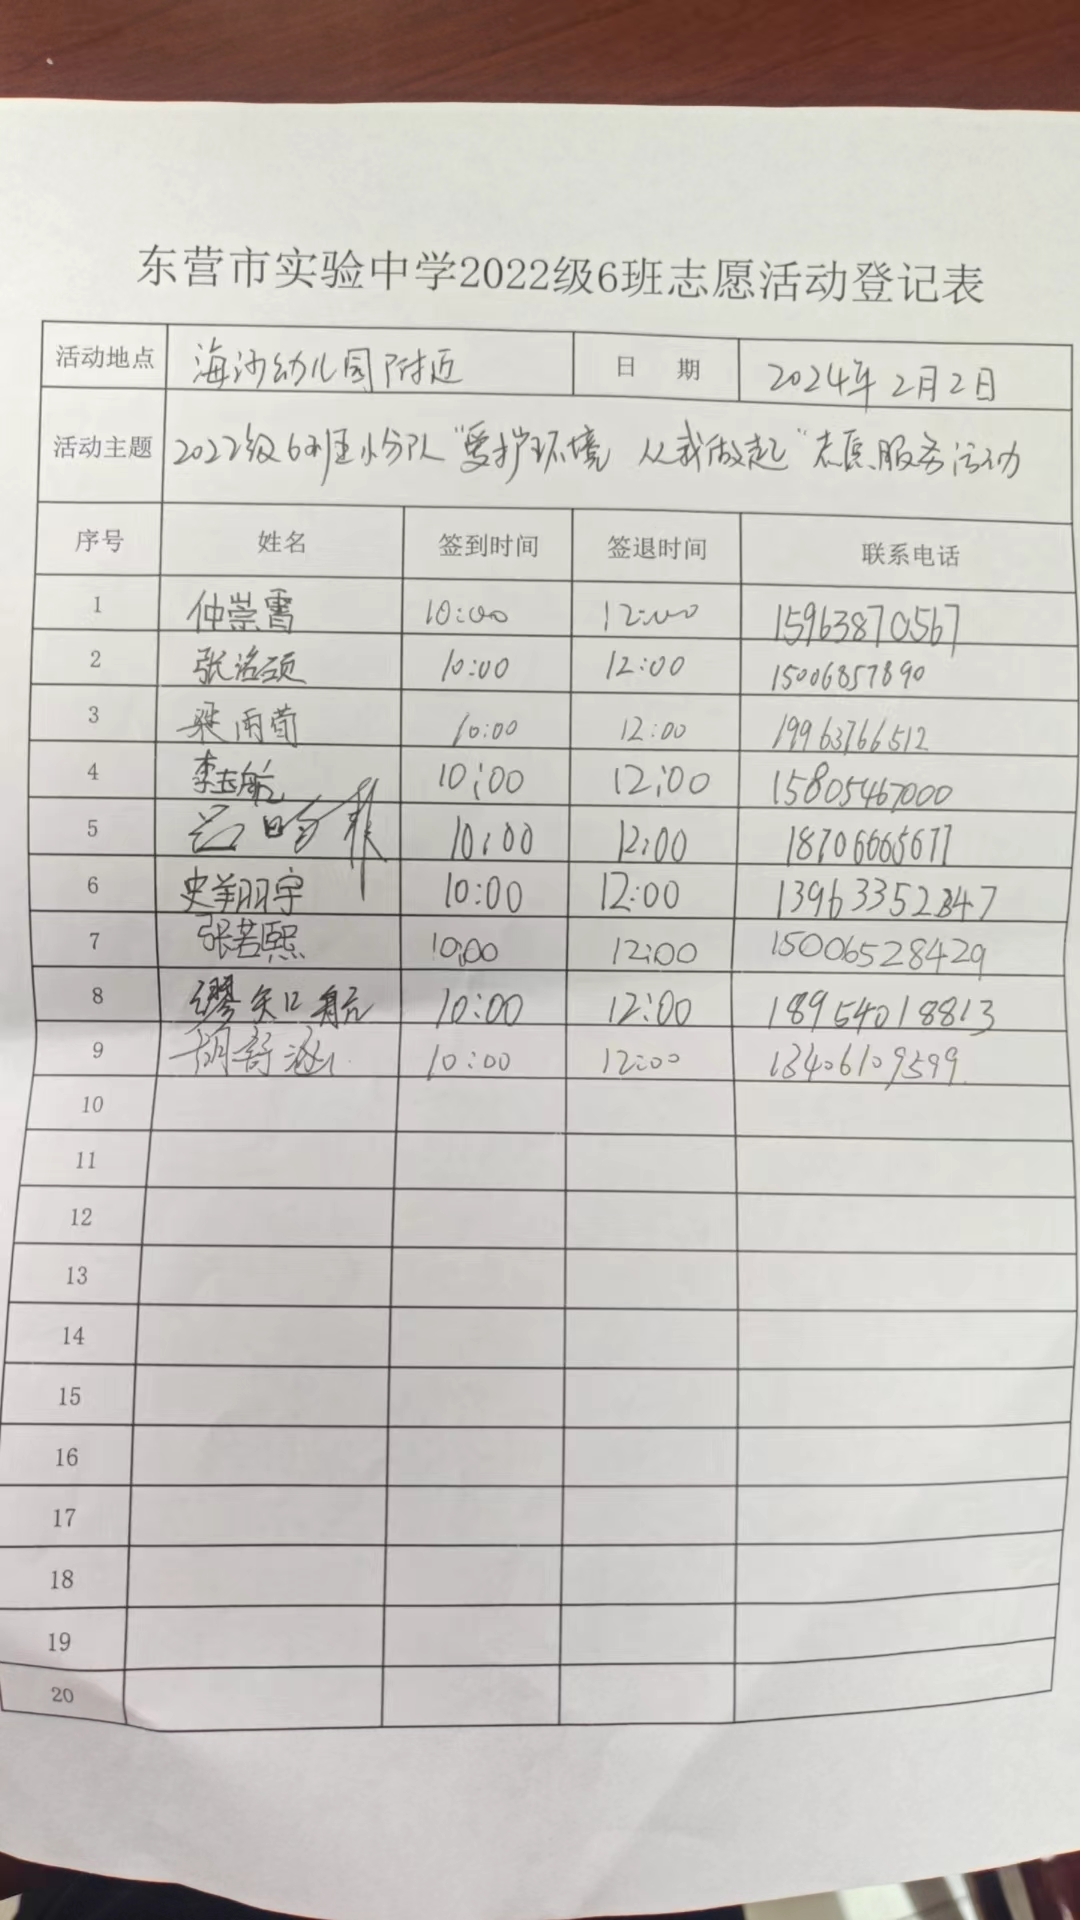 东营市实验中学2022级6班志愿活动登记表
活动地点 海沙幼儿园附近 日 期 2024年2月2日
活动主题 2022级6班小分队“爱护环境 从我做起”志愿服务活动
序号 姓名 签到时间 签退时间 联系电话
1 仲崇霄 10:00 12:00 15963870567
2 张洺硕 10:00 12:00 15006857890
3 梁雨荀 10:00 12:00 19963766512
4 李志航 10:00 12:00 15805467000
5 10:00 12:00
6 史翔宇 10:00 12:00 13963352347
7 张若熙 10:00 12:00 15006528429
8 缪知航 10:00 12:00 18954018813
9 胡舒涵 10:00 12:00 13406109599
10
11
12
13
14
15
16
17
18
19
20